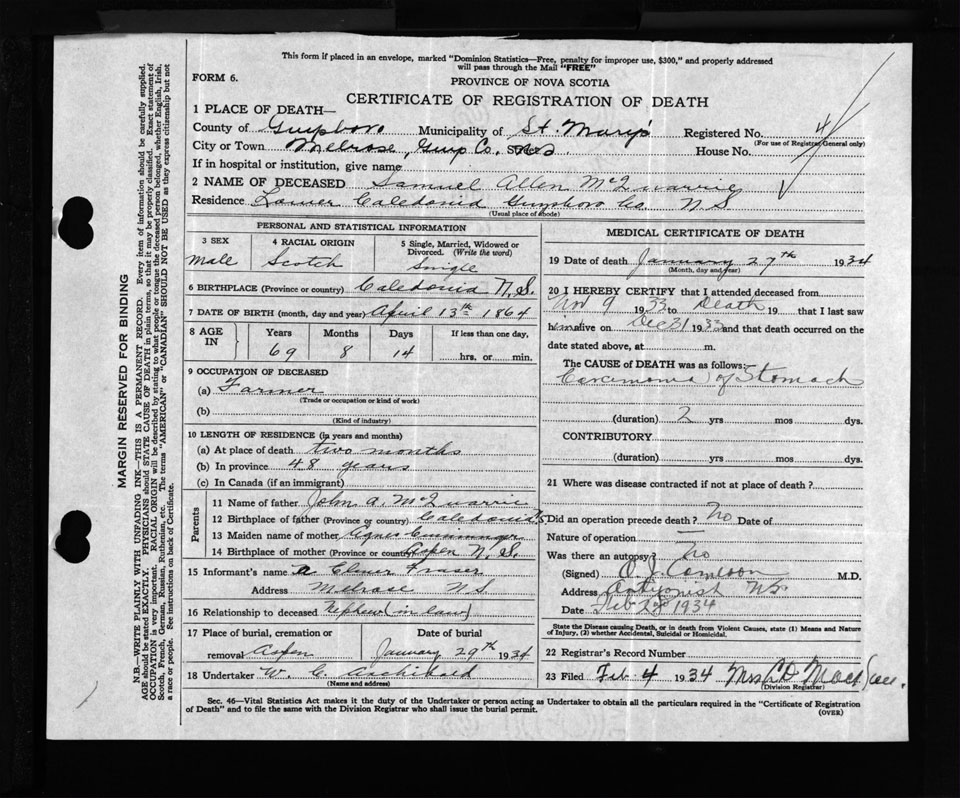 This form if placed in an envelope, marked "Dominion Statistics—Free, penalty for improper use, $300," and properly addressed
will pass through the Mail "FREE"
FORM 6.
PROVINCE OF NOVA SCOTIA
CERTIFICATE OF REGISTRATION OF DEATH
1 PLACE OF DEATH—
County of Guysboro Municipality of St. Mary's Registered No. 4
(For use of Registrar General only)
City or Town Melrose, Guys Co. N.S. House No.
If in hospital or institution, give name
2 NAME OF DECEASED Samuel Allen McQuarrie
Residence Lower Caledonia Guysboro Co. N.S.
(Usual place of abode)
PERSONAL AND STATISTICAL INFORMATION
3 SEX 4 RACIAL ORIGIN 5 Single, Married, Widowed or
Divorced. (Write the word)
Male Scotch Single
6 BIRTHPLACE (Province or country) Caledonia N.S.
7 DATE OF BIRTH (month, day and year) April 13th 1864
8 AGE IN Years Months Days If less than one day,
69 8 14 hrs. or min.
9 OCCUPATION OF DECEASED
(a) Farmer
(Trade or occupation or kind of work)
(b)
(Kind of industry)
10 LENGTH OF RESIDENCE (in years and months)
(a) At place of death two months
(b) In province 48 years
(c) In Canada (if an immigrant)
Parents
11 Name of father John A. McQuarrie
12 Birthplace of father (Province or country) Caledonia N.S.
13 Maiden name of mother Agnes Cumminger
14 Birthplace of mother (Province or country) Aspen N.S.
15 Informant's name A Elmer Fraser
Address Melrose N S
16 Relationship to deceased Nephew (in law)
17 Place of burial, cremation or Date of burial
removal Aspen January 29th 1934
18 Undertaker W. C. Archibald
(Name and address)
MEDICAL CERTIFICATE OF DEATH
19 Date of death January 27th 1934
(Month, day and year)
20 I HEREBY CERTIFY that I attended deceased from
Nov 9 1933 to Death 19 that I last saw
him alive on Dec 31 1933 and that death occurred on the
date stated above, at m.
The CAUSE of DEATH was as follows:
Carcinoma of Stomach
(duration) 2 yrs mos dys.
CONTRIBUTORY
(duration) yrs mos dys.
21 Where was disease contracted if not at place of death?
Did an operation precede death? No Date of
Nature of operation
Was there an autopsy? No
(Signed) M.D.
Address Antigonish NS
Date Feb 1934
State the Disease causing Death, or in death from Violent Causes, state (1) Means and Nature
of Injury, (2) whether Accidental, Suicidal or Homicidal.
22 Registrar's Record Number
23 Filed Feb 4 1934 Mrs
(Division Registrar)
Sec. 46—Vital Statistics Act makes it the duty of the Undertaker or person acting as Undertaker to obtain all the particulars required in the "Certificate of Registration
of Death" and to file the same with the Division Registrar who shall issue the burial permit.
(OVER)
MARGIN RESERVED FOR BINDING
N.B.—WRITE PLAINLY WITH UNFADING INK—THIS IS A PERMANENT RECORD. Every item of information should be carefully supplied.
AGE should be stated EXACTLY. PHYSICIANS should STATE CAUSE OF DEATH in plain terms, so that it may be properly classified. Exact statement of
OCCUPATION is very important. RACIAL ORIGIN will be described by stating to what people or tongue the deceased person belonged, whether English, Irish,
Scotch, French, German, Russian, Ruthenian, etc. The terms "AMERICAN" or "CANADIAN" SHOULD NOT BE USED as they express citizenship but not
a race or people. See instructions on back of Certificate.